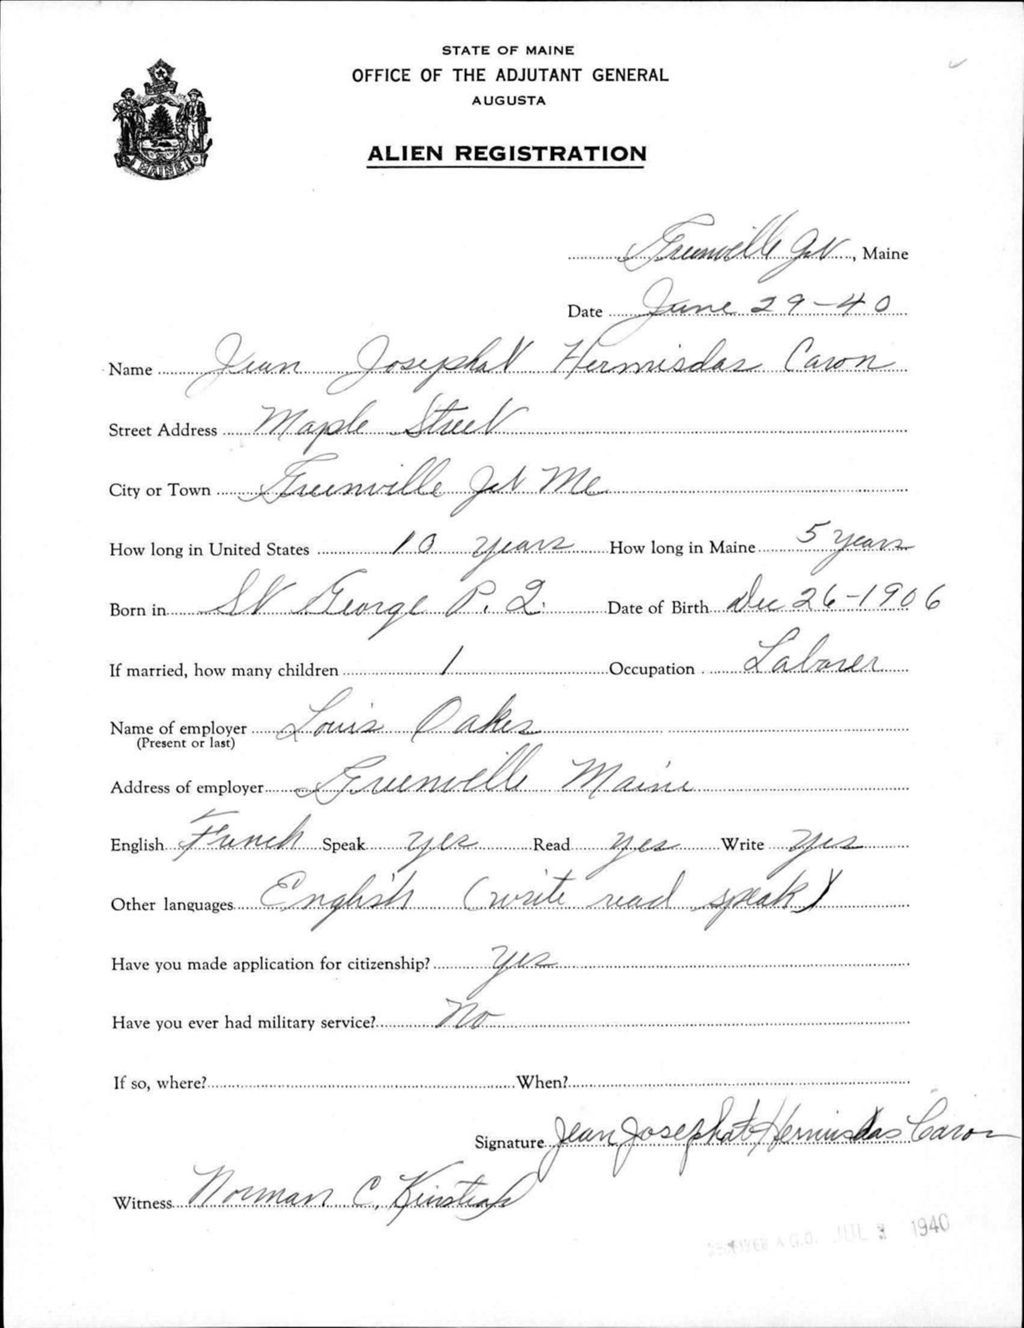 STATE OF MAINE
OFFICE OF THE ADJUTANT GENERAL
AUGUSTA
ALIEN REGISTRATION
MAINE
Greenville Jct, Maine
Date June 29-40
Name Jean Josephat Hermisdas Caron
Street Address Maple Street
City or Town Greenville Jct Me
How long in United States 10 years How long in Maine 5 years
Born in St George P. Q. Date of Birth Dec 26-1906
If married, how many children 1 Occupation Laborer
Name of employer Louis Oakes
(Present or last)
Address of employer Greenville Maine
English French Speak yes Read yes Write yes
Other languages English (write read speak)
Have you made application for citizenship? yes
Have you ever had military service? No
If so, where? When?
Signature Jean Josephat Hermisdas Caron
Witness Norman C.
A.G.O. JUL 1940